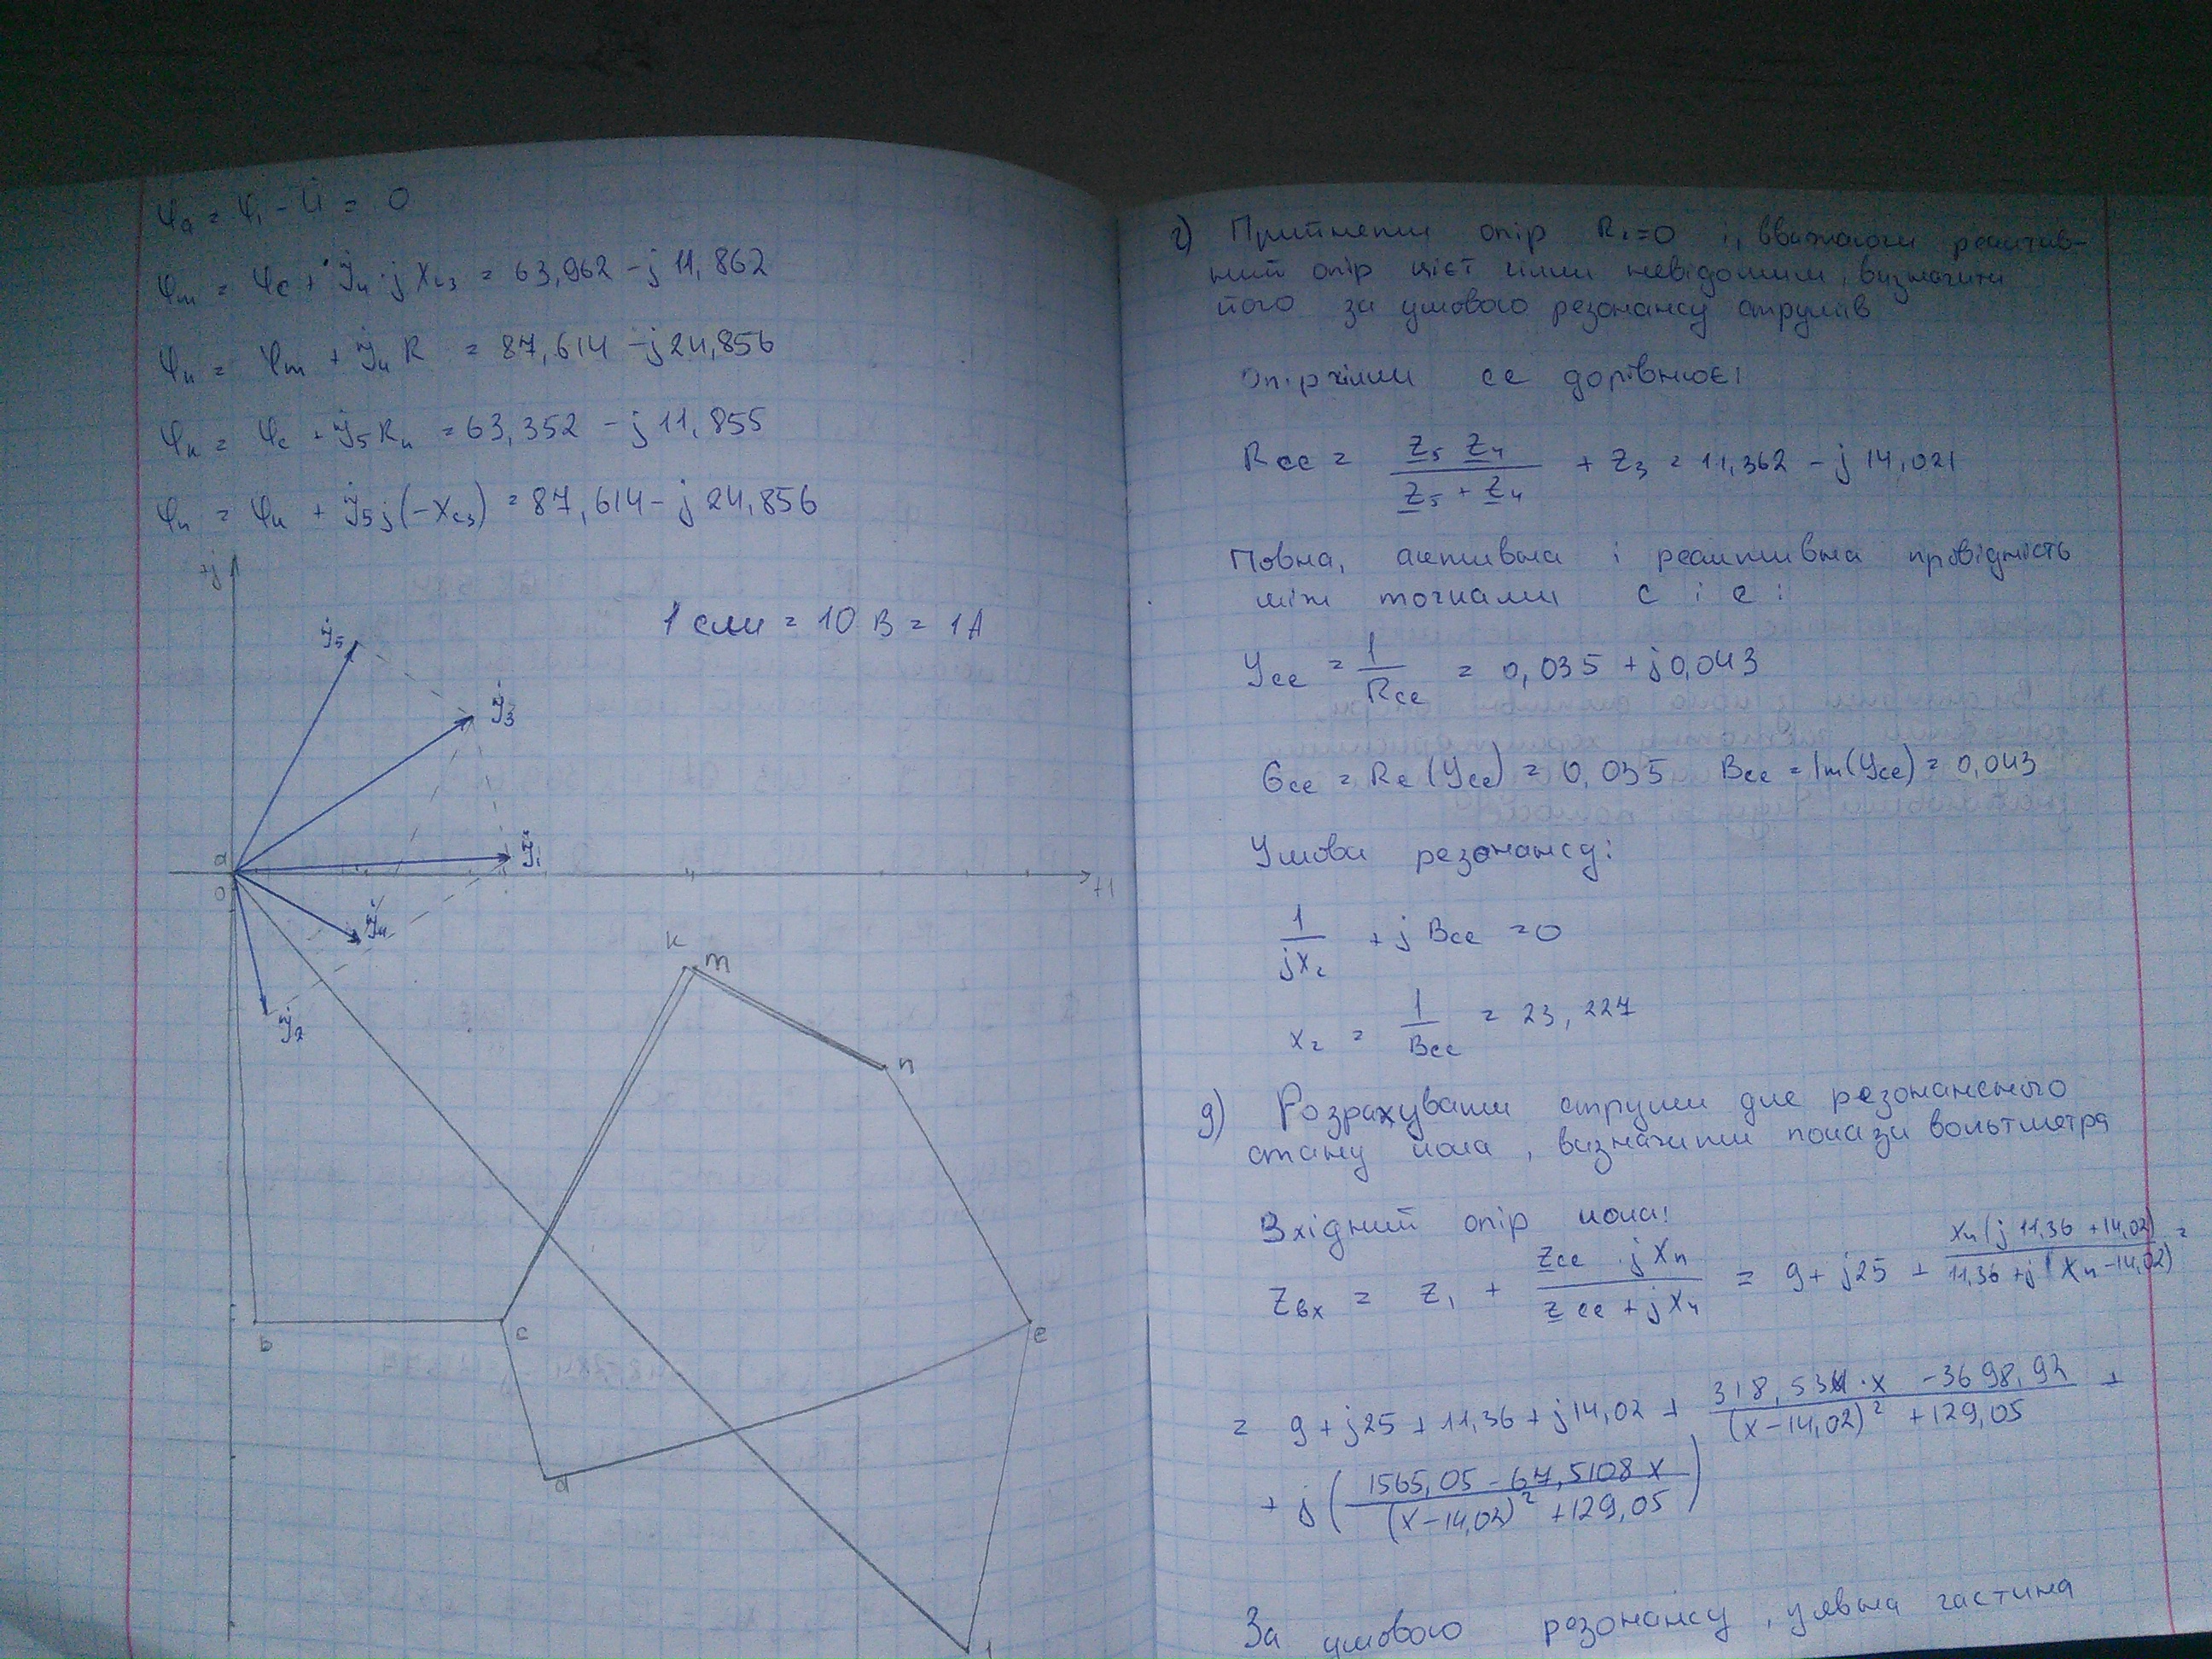 φa = φ1 - U̇ = 0
φm = φc + İ4 · jXL3 = 63,962 - j 11,862
φn = φm + İ4 R = 87,614 - j 24,856
φk = φc + İ5 R4 = 63,352 - j 11,855
φn = φk + İ5 j(-Xc3) = 87,614 - j 24,856
+j
1 см = 10 В = 1 А
İ5
İ3
İ1
a
0
+1
İ4
İ2
k
m
n
b
c
e
d
1
г) Прийнявши опір R2=0 і, вважаючи реактив-
ний опір цієї гілки невідомим, визначити
його за умовою резонансу струмів
Опір гілки ce дорівнює:
Rce = Z5 Z4 / (Z5 + Z4) + Z3 = 11,362 - j 14,021
Повна, активна і реактивна провідність
між точками c і e:
Yce = 1/Rce = 0,035 + j0,043
Gce = Re(Yce) = 0,035 Bce = Im(Yce) = 0,043
Умова резонансу:
1/(jX2) + j Bce = 0
X2 = 1/Bce = 23,227
д) Розрахувати струми для резонансного
стану кола, визначити покази вольтметра
Вхідний опір кола:
Zвх = Z1 + (Zce · jXн)/(Zce + jXн) = 9 + j25 + Xн(j 11,36 + 14,02)/(11,36 + j(Xн - 14,02)) =
= 9 + j25 + 11,36 + j14,02 + (318,534·x - 3698,92)/((x - 14,02)² + 129,05) +
+ j((1565,05 - 67,5108 x)/((x - 14,02)² + 129,05))
За умовою резонансу, уявна частина